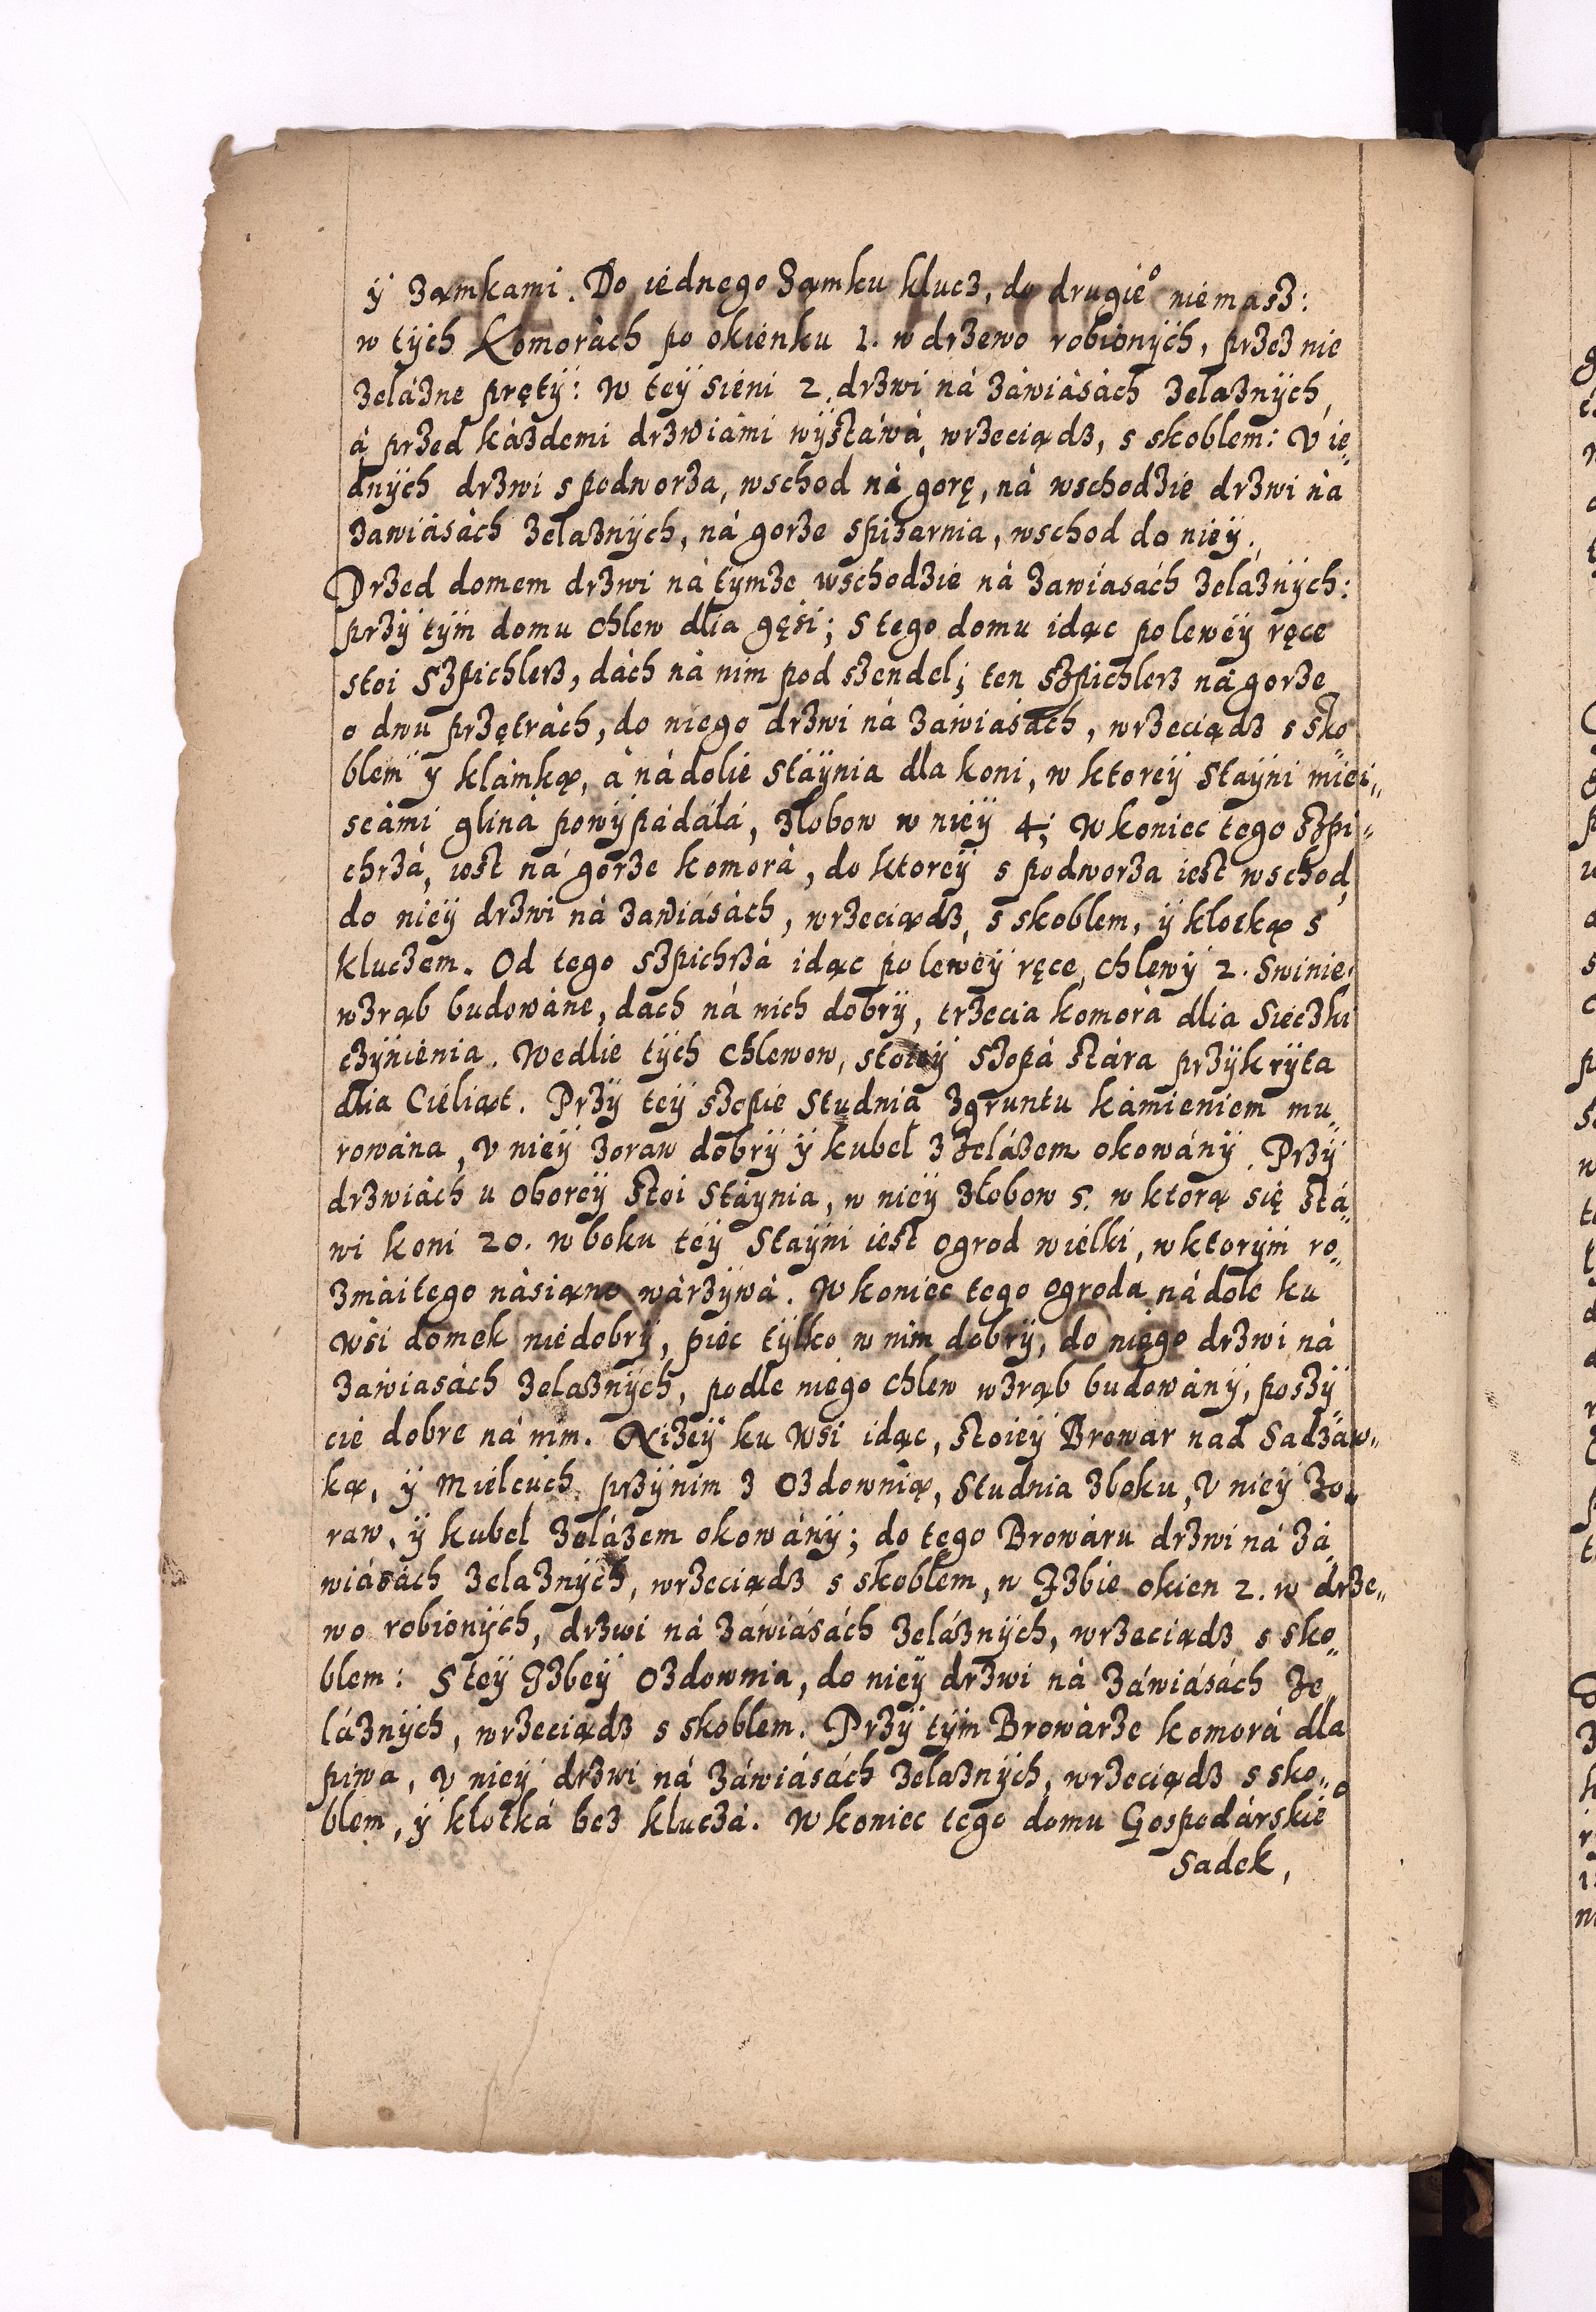 ÿ ząmkami. Do iednego Ząmku klucz, do drugie° niemasz:
w tÿch Komoràch po okienku 1. w drzewo robionÿch, przez nie
zelázne prętÿ: W teÿ sieni 2. drzwi ná záwiásách zelaznÿch,
á przed káżdemi drzwiámi wÿstáwá, wrzeciądz, s skoblem: V ie„
dnÿch drzwi s podworza, wschod ná gorę, ná wschodzie drzwi ná
zawiásách zelaznÿch, ná gorze spiżarnia, wschod do nieÿ.
Przed domem drzwi ná tÿmze wschodzie ná zawiasách zeláznÿch:
przÿ tÿm domu chlew dlia gęśi; S tego domu idąc po leweÿ ręce
stoi Szpichlerz, dách ná nim pod szendel; ten szpichlerz ná gorze
o dwu przętrách, do niego drzwi ná záwiásách, wrzeciądz s sko„
blem ÿ klámką, á ná dolie stáÿnia dla koni, w ktoreÿ Staÿni miei„
scámi glina powÿpádáłá, żłobow w nieÿ 4; W koniec tego szpi„
chrzá, iest ná gorze komorá, do ktoreÿ s podworza iest wschod,
do nieÿ drzwi ná zawiásách, wrzeciądz, s skoblem, ÿ kłotką s
kluczem. Od tego szpichrzá idąc po leweÿ ręce, chlewÿ 2. Swinie,
wzrąb budowáne, dach ná nich dobrÿ, trzecia komorá dlia Sieczki
czÿnienia. Wedlie tÿch Chlewow, stoieÿ szopá stára przÿkrÿta
dlia Cieliąt. Przÿ teÿ szopie Studnia z gruntu kámieniem mu„
rowána, v nieÿ żoraw dobrÿ ÿ kubeł z żelázem okowánÿ. Przÿ
drzwiách u oboreÿ stoi Stáÿnia, w nieÿ żłobow 5. w ktorą się stá„
wi koni 20. w boku teÿ Staÿni iest ogrod wielki, w ktorÿm ro„
zmáitego násiąno wárzÿwá. W koniec tego ogroda ná dole ku
wśi domek niedobrÿ, piec tÿlko w nim dobrÿ, do niego drzwi ná
zawiasách zelaznÿch, podle niego chlew wzrąb budowánÿ, poszÿ„
cie dobre ná nim. Niżeÿ ku Wsi idąc, stoieÿ Browar nad Sadzáw„
ką, ÿ Mielcuch przÿ nim z Ozdownią, Studnia z boku, V nieÿ żo„
raw, ÿ kubeł zelázem okowánÿ; do tego Browáru drzwi ná zá„
wiásách zelaznÿch, wrzeciądz s skoblem, w Izbie okien 2. w drze„
wo robionÿch, drzwi ná záwiásách zeláznÿch, wrzeciądz s sko„
blem: S teÿ Izbeÿ Ozdownia, do nieÿ drzwi ná záwiásách że„
láznÿch, wrzeciądz s skoblem. Przÿ tÿm Browárze komorá dla
piwa, v nieÿ drzwi ná záwiásách zelaznÿch, wrzeciądz s sko„
blem, ÿ kłotká bez kluczá. W koniec tego domu Gospodárskie°
Sadek,